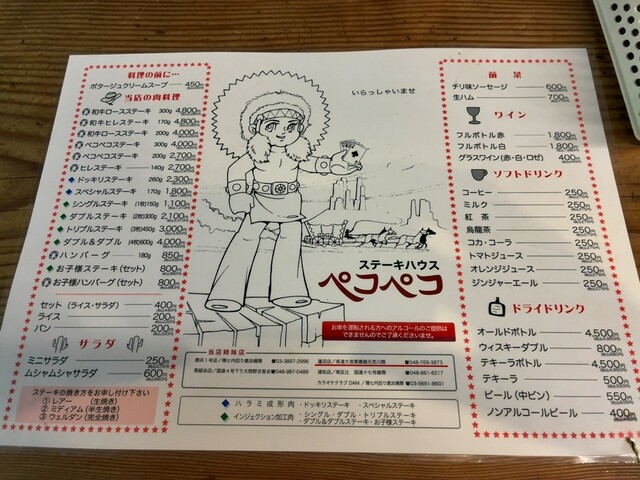 料理の前に…
ポタージュクリームスープ 450円
当店の肉料理
和牛ロースステーキ 300g 4,800円
和牛ヒレステーキ 170g 4,800円
和牛ロースステーキ 200g 4,000円
ペコペコステーキ 300g 4,000円
ペコペコステーキ 200g 2,700円
ヒレステーキ 140g 2,700円
ドッキリステーキ 260g 2,300円
スペシャルステーキ 170g 1,800円
シングルステーキ (1枚)150g 1,100円
ダブルステーキ (2枚)300g 2,100円
トリプルステーキ (3枚)450g 3,000円
ダブル&ダブル (4枚)600g 4,000円
ハンバーグ 180g 850円
お子様ステーキ (セット) 800円
お子様ハンバーグ (セット) 800円
セット (ライス・サラダ) 400円
ライス 200円
パン 200円
サラダ
ミニサラダ 250円
ムシャムシャサラダ 600円
ステーキの焼き方をお申し付け下さい
① レアー (生焼き)
② ミディアム (半生焼き)
③ ウェルダン (完全焼き)
いらっしゃいませ
ステーキハウス
ペコペコ
お車を運転される方へのアルコールのご提供は
できませんのでご了承くださいませ。
当店姉妹店
カラオケクラブ DAM
ハラミ成形肉 ・ドッキリステーキ ・スペシャルステーキ
インジェクション加工肉 ・シングル・ダブル・トリプルステーキ
・ダブル&ダブルステーキ・お子様ステーキ
前菜
チリ味ソーセージ 600円
生ハム 700円
ワイン
フルボトル赤 1,800円
フルボトル白 1,800円
グラスワイン (赤・白・ロゼ) 400円
ソフトドリンク
コーヒー 250円
ミルク 250円
紅茶 250円
烏龍茶 250円
コカ・コーラ 250円
トマトジュース 250円
オレンジジュース 250円
ジンジャーエール 250円
ドライドリンク
オールドボトル 4,500円
ウィスキーダブル 800円
テキーラボトル 4,500円
テキーラ 500円
ビール (中ビン) 550円
ノンアルコールビール 400円